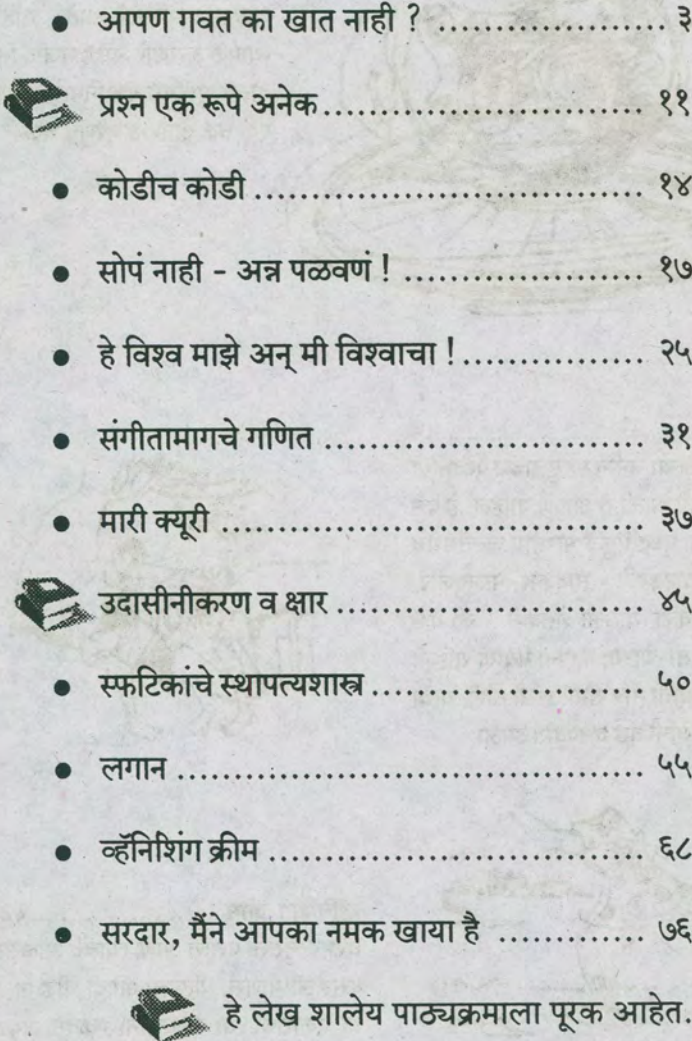 ● आपण गवत का खात नाही ? ..................... ३
प्रश्न एक रूपे अनेक............................. ११
● कोडीच कोडी ................................... १४
● सोपं नाही - अन्न पळवणं ! ...................... १७
● हे विश्व माझे अन् मी विश्वाचा !................. २५
● संगीतामागचे गणित ............................. ३१
● मारी क्यूरी ...................................... ३७
उदासीनीकरण व क्षार ............................ ४५
● स्फटिकांचे स्थापत्यशास्त्र ......................... ५०
● लगान .......................................... ५५
● व्हॅनिशिंग क्रीम .................................. ६८
● सरदार, मैंने आपका नमक खाया है ............. ७६
हे लेख शालेय पाठ्यक्रमाला पूरक आहेत.